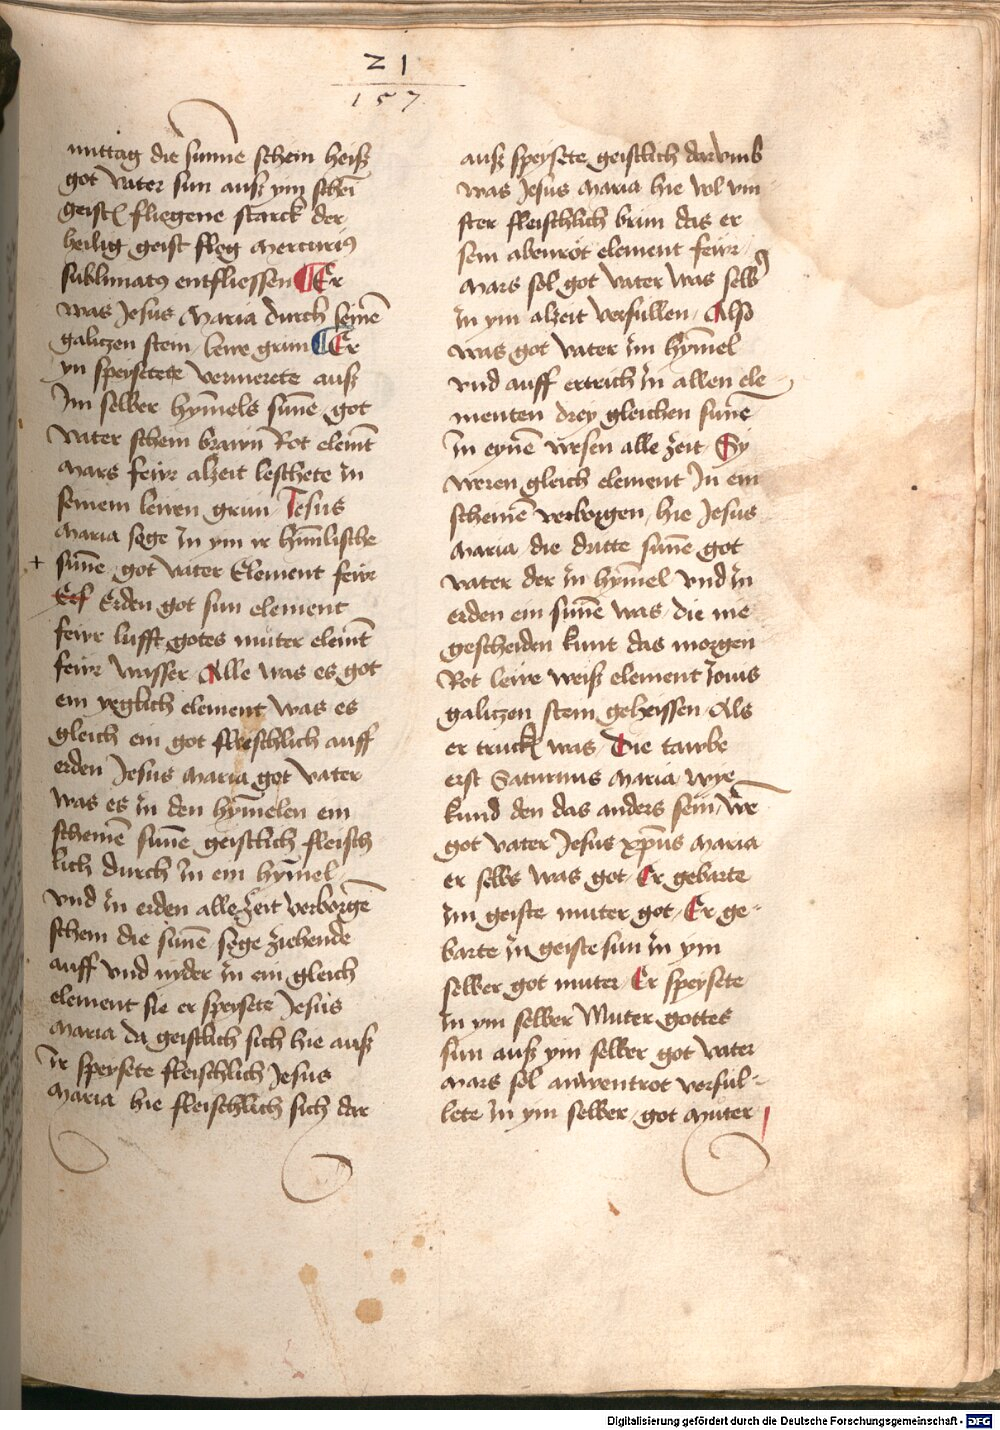 21
157
mittag die sunne schein heiß
got vater sun auß ym schei
geistl fliegene starck der
heilig geist flog mercurius
sublimatus entfliessen Er
was Jesus Maria durch seinē
galiczen stein lewe grun Er
yn speysete vermerete auß
Im selber hym̄els sun̄e got
vater schein brawn Rot elemt̄
mars fewr alzeit leschete In
seinem lewen grun Jesus
maria soge In ym ir him̄lische
sun̄e got vater Element fewr
Erden got sun element
fewr lufft gotes muter elemt̄
fewr wasser Alle was es got
ein yeglich element was es
gleich ein got fleischlich auff
erden Jesus maria got vater
was es In den hym̄elen ein
scheinē sun̄e geistlich fleisch
lich durch In ein hym̄el
vnd In erden alle zeit verborgē
schein die sun̄e soge ziehende
auff vnd nyder In ein gleich
element sie er speysete Jesus
maria da geistlich sich hie auß
Ir speysete fleischlich Jesus
maria hie fleischlich sich dar
auß speysete geistlich darvmb
was Jesus maria hie vol vin
ster fleischlich brun das er
sein abenrot element fewr
mars sol got vater was selbs
In ym alzeit verfullen Also
was got vater im hym̄el
vnd auff ertrich In allen ele
menten drey gleichen sun̄e
In eynē wesen alle zeit Sy
weren gleich element In ein
scheinē verborgen hie Jesus
maria die dritte sun̄e got
vater der In hym̄el vnd In
erden ein sun̄e was die nie
gescheiden kunt das morgen
Rot lewe weiß element Jouis
galiczen stein geheissen Als
er truck was Die tawbe
erst Saturnus maria wye
kund den das anders sein wē
got vater Jesus xp̄us maria
er selbs was got Er gebarte
im geiste muter got Er ge-
barte In geiste sun In ym
selber got muter Er speysete
In ym selber Muter gottes
sun auß ym selber got vater
mars sol auwentrot verful-
lete In ym selber got muter
Digitalisierung gefördert durch die Deutsche Forschungsgemeinschaft - DFG